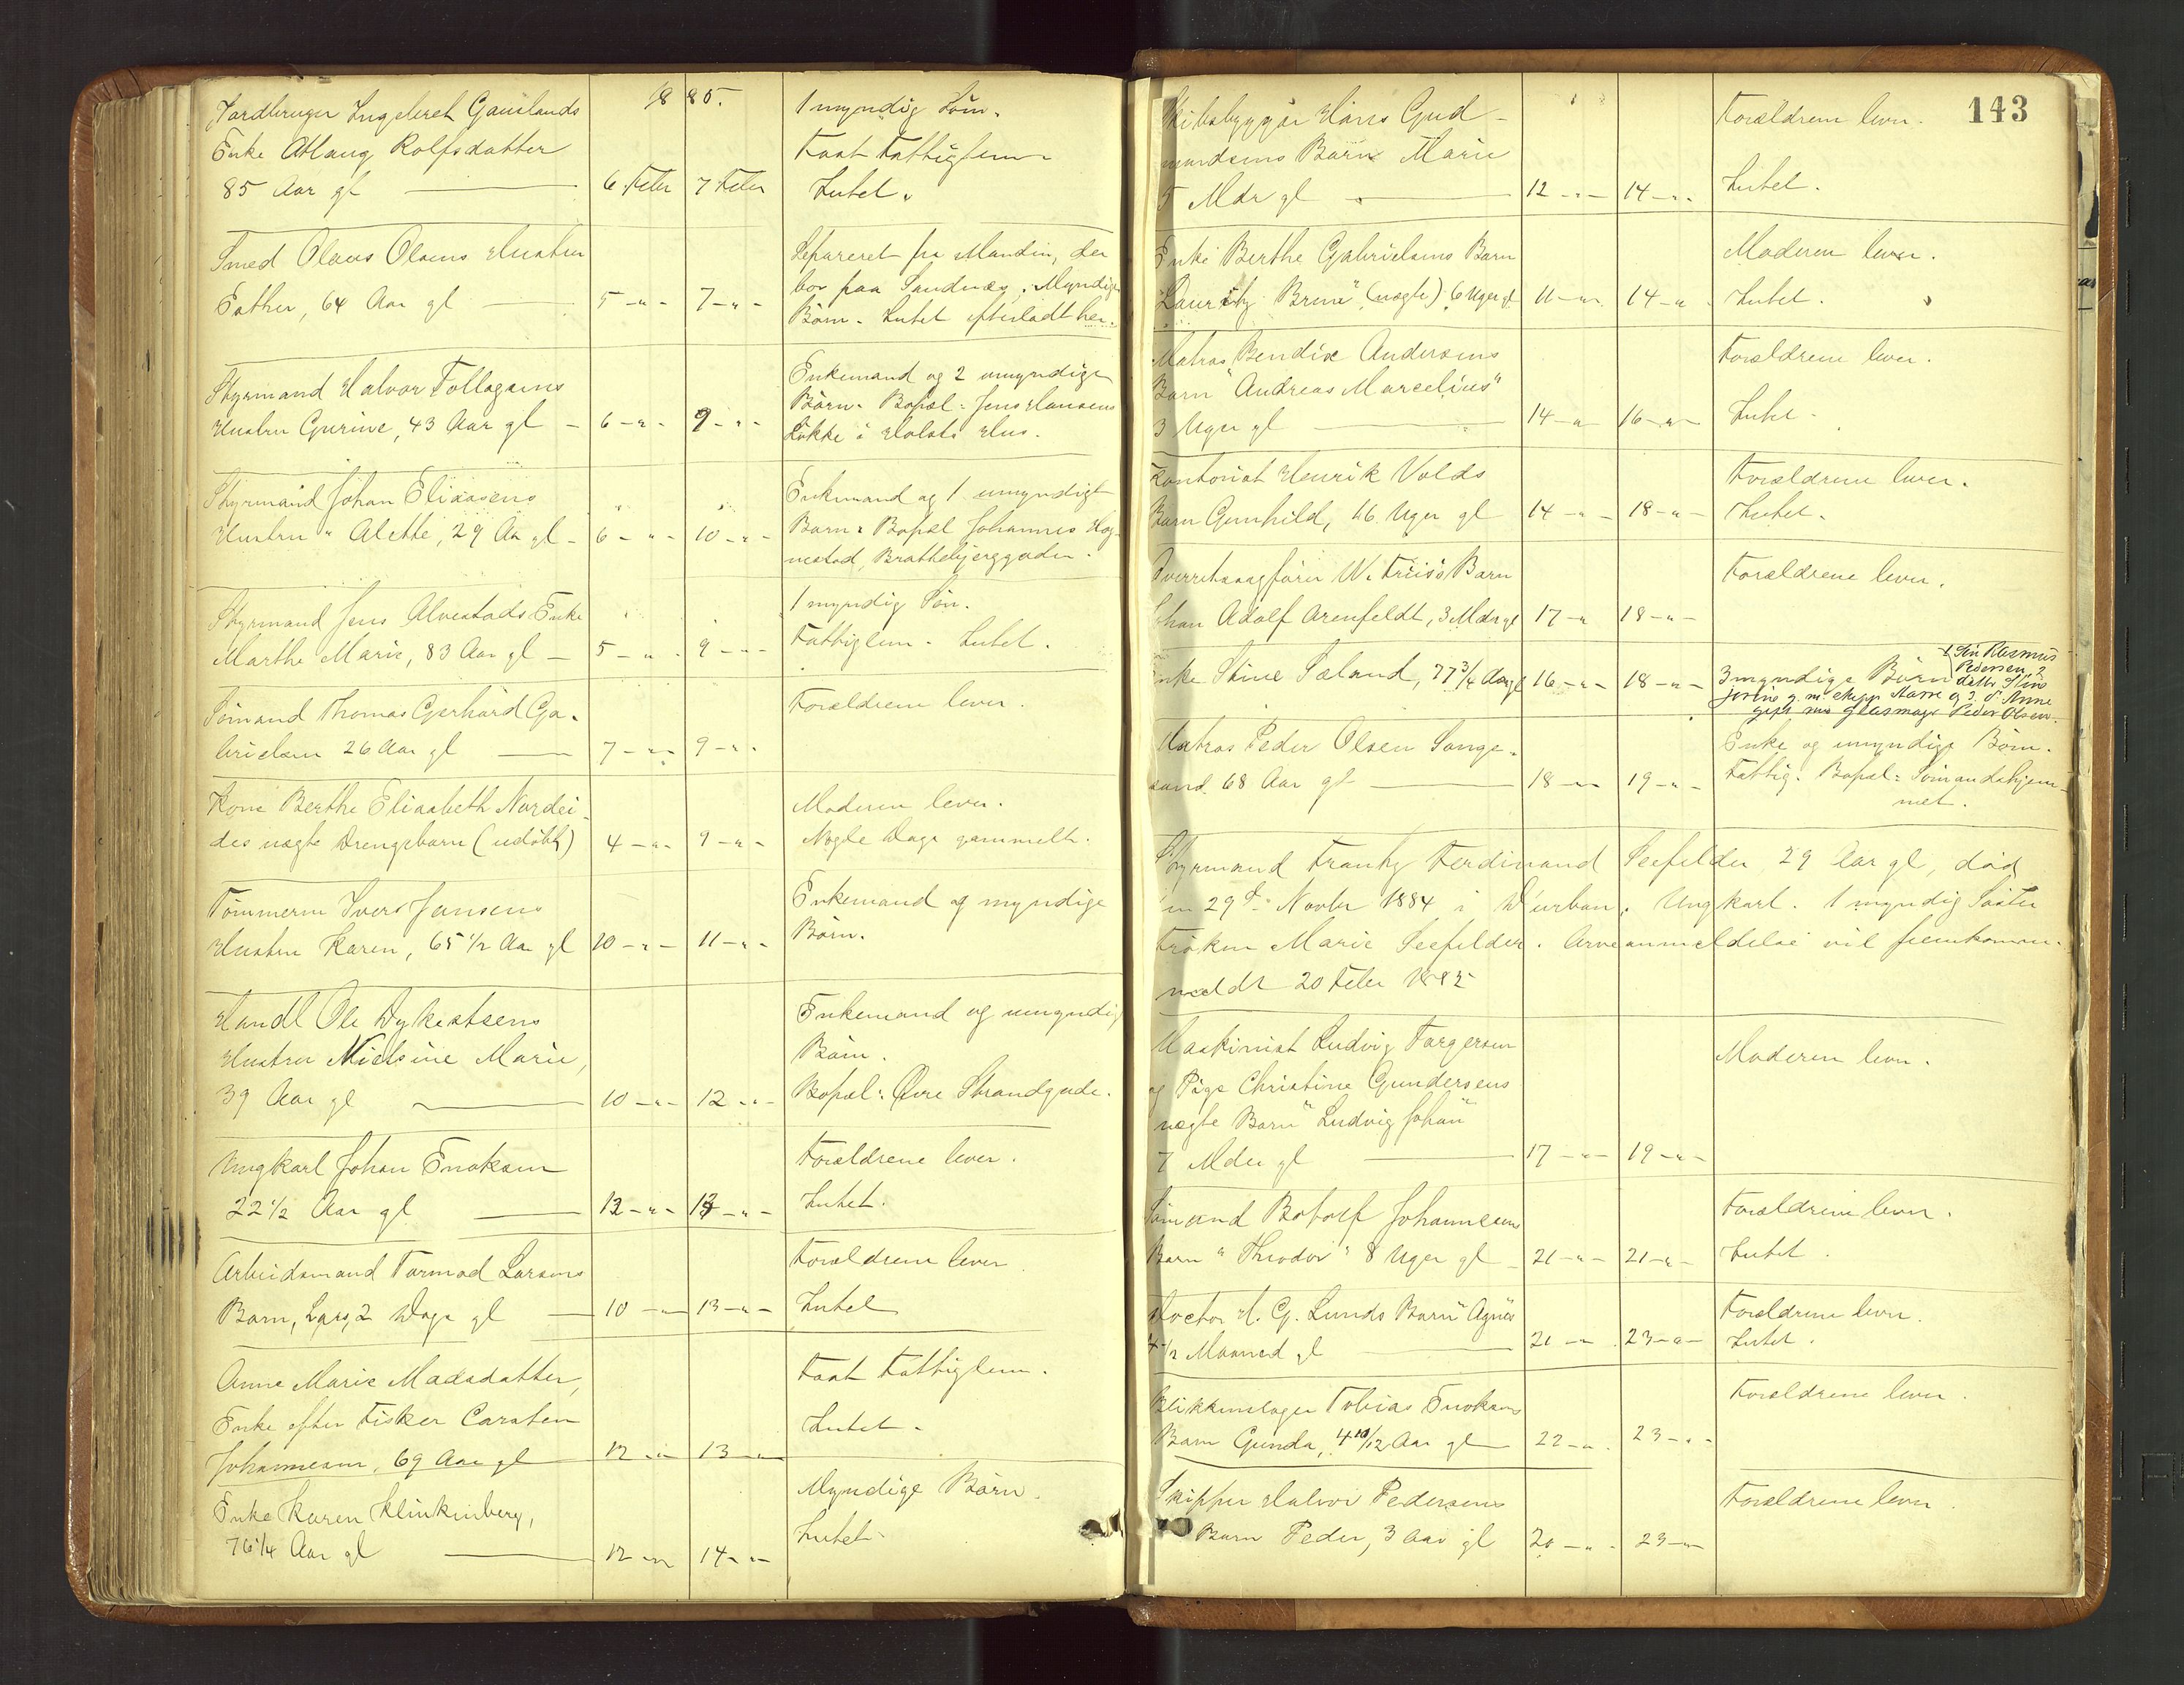 1885.
Jordbruger Ingebret Gauslands
Enke Atlaug Rolfsdatter
85 Aar gl
6 Febr 7 Febr
1 myndig Søn.
Fast Fattiglem
Intet.
Smed Olaus Olsens Hustru
Eather, 64 Aar gl
5 - " - 7 - " -
Separeret fra Manden, der
bor paa Sandnæs. Myndige
Børn. Intet efterladt her.
Styrmand Halvor Tollagsens
Hustru Gurine, 43 Aar gl
6 - " - 9 - " -
Enkemand og 2 umyndige
Børn. Bopæl: Jens Hansens
Løkke i Holsts Hus.
Styrmand Johan Eliasens
Hustru " Alette, 29 Aar gl
6 - " - 10 - " -
Enkemand og 1 umyndigt
Barn. Bopæl Johannes Hog-
nestad, Brattebjerggaden.
Styrmand Jens Alvestads Enke
Marthe Marie, 83 Aar gl
5 - " - 9 - " -
1 myndig Søn.
Fattiglem. Intet.
Sømand Thomas Gerhard Ga-
brielsen 26 Aar gl
7 - " - 9 - " -
Forældrene lever.
Kone Berthe Elisabeth Nordei-
des uægte Drengebarn (udøbt)
4 - " - 9 - " -
Moderen lever.
Nogle Dage gammelt.
Tømmerm Ivers Jensens
Hustru Karen, 65 1/2 Aar gl
10 - " - 11 - " -
Enkemand og myndige
Børn.
Handl Ole Dykestsens
Hustru Nielsine Marie,
39 Aar gl
10 - " - 12 - " -
Enkemand og umyndige
Børn.
Bopæl: Øvre Strandgade.
Ungkarl Johan Enoksen
22 1/2 Aar gl
12 - " - 13 - " -
Forældrene lever.
Intet.
Arbeidsmand Tormod Larsens
Barn, Lars, 2 Dage gl
10 - " - 13 - " -
Forældrene lever
Intet
Anne Marie Madsdatter,
Enke efter Fisker Carsten
Johannesen, 69 Aar gl
12 - " - 13 - " -
Fast Fattiglem.
Intet.
Enke Karen Klinkenberg,
76 1/4 Aar gl
12 - " - 14 - " -
Myndige Børn.
Intet
143
Skibsbygger Hans Gud-
mundsens Barn Marie
5 Mdr gl
12 - " - 14 - " -
Forældrene lever.
Intet.
Enke Berthe Gabrielsens Barn
"Lauritz Brun" (uægte) 6 Uger gl
11 - " - 14 - " -
Moderen lever.
Intet.
Matros Bendix Andersens
Barn "Andreas Marcelius"
3 Uger gl
14 - " - 16 - " -
Forældrene lever.
Intet.
Kontorist Henrik Volds
Barn Gunhild, 46 Uger gl
14 - " - 18 - " -
Forældrene lever.
Intet.
Overretssagfører W. Friis's Barn
Johan Adolf Arenfeldt, 3 Mdr gl
17 - " 18 - " -
Forældrene lever.
Enke Stine Sæland, 77 3/4 Aar gl
16 - " - 18 - " -
3 myndige Børn
Søn Rasmus
Pedersen, 2
døttr Stine
gift m Glasmagr Peder Olsen.
Matros Peder Olsen Songe-
sand 68 Aar gl
18 - " - 19 - " -
Enke og umyndige Børn.
Fattig. Bopæl: Sømandshjem-
met.
Styrmand Frantz Ferdinand Seefelder 29 Aar gl, død
den 29de Novbr 1884 i Durban. Ungkarl. 1 myndig Søster
Frøken Marie Seefelder. Arveanmeldelse vil fremkomme.
meldt 20 Febr 1885
Maskinist Ludvig Torgersen
og Pige Christine Gundersens
uægte Barn "Ludvig Johan"
7 Mdr gl
17 - " - 19 - " -
Moderen lever.
Sømand Botolf Johannesens
Barn "Theodor" 8 Uger gl
21 - " - 21 - " -
Forældrene lever.
Intet.
Doctor H. G. Lunds Barn "Agnes"
4 1/2 Maaned gl
21 - " - 23 - " -
Forældrene lever.
Intet.
Blikkenslager Tobias Enoksens
Barn Gunda, 4 10/12 Aar gl
22 - " - 23 - " -
Forældrene lever.
Skipper Halvor Pedersens
Barn Peder, 3 Aar gl
20 - " - 23 - " -
Forældrene lever.